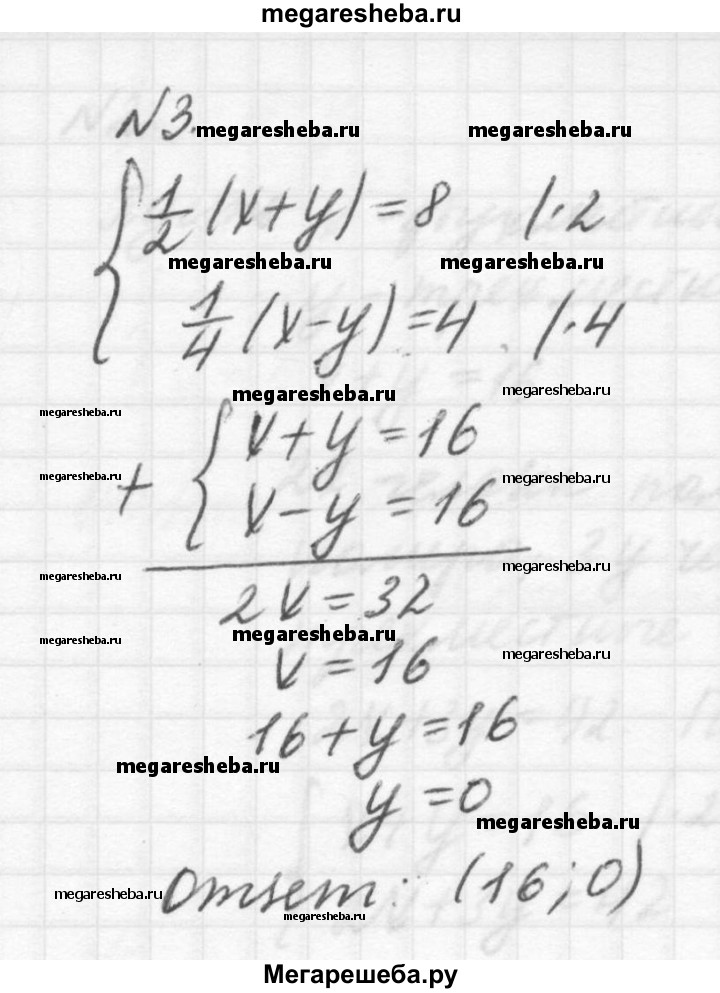 megaresheba.ru
N3. megaresheba.ru megaresheba.ru
{ 1/2 (x+y) = 8 |·2
megaresheba.ru megaresheba.ru
1/4 (x-y) = 4 |·4
megaresheba.ru megaresheba.ru megaresheba.ru
+ { x+y = 16
megaresheba.ru megaresheba.ru
x-y = 16
megaresheba.ru megaresheba.ru
2x = 32
megaresheba.ru megaresheba.ru megaresheba.ru
x = 16
16+y = 16
megaresheba.ru
y = 0
megaresheba.ru
megaresheba.ru Ответ: (16; 0)
megaresheba.ru
Мегарешеба.ру